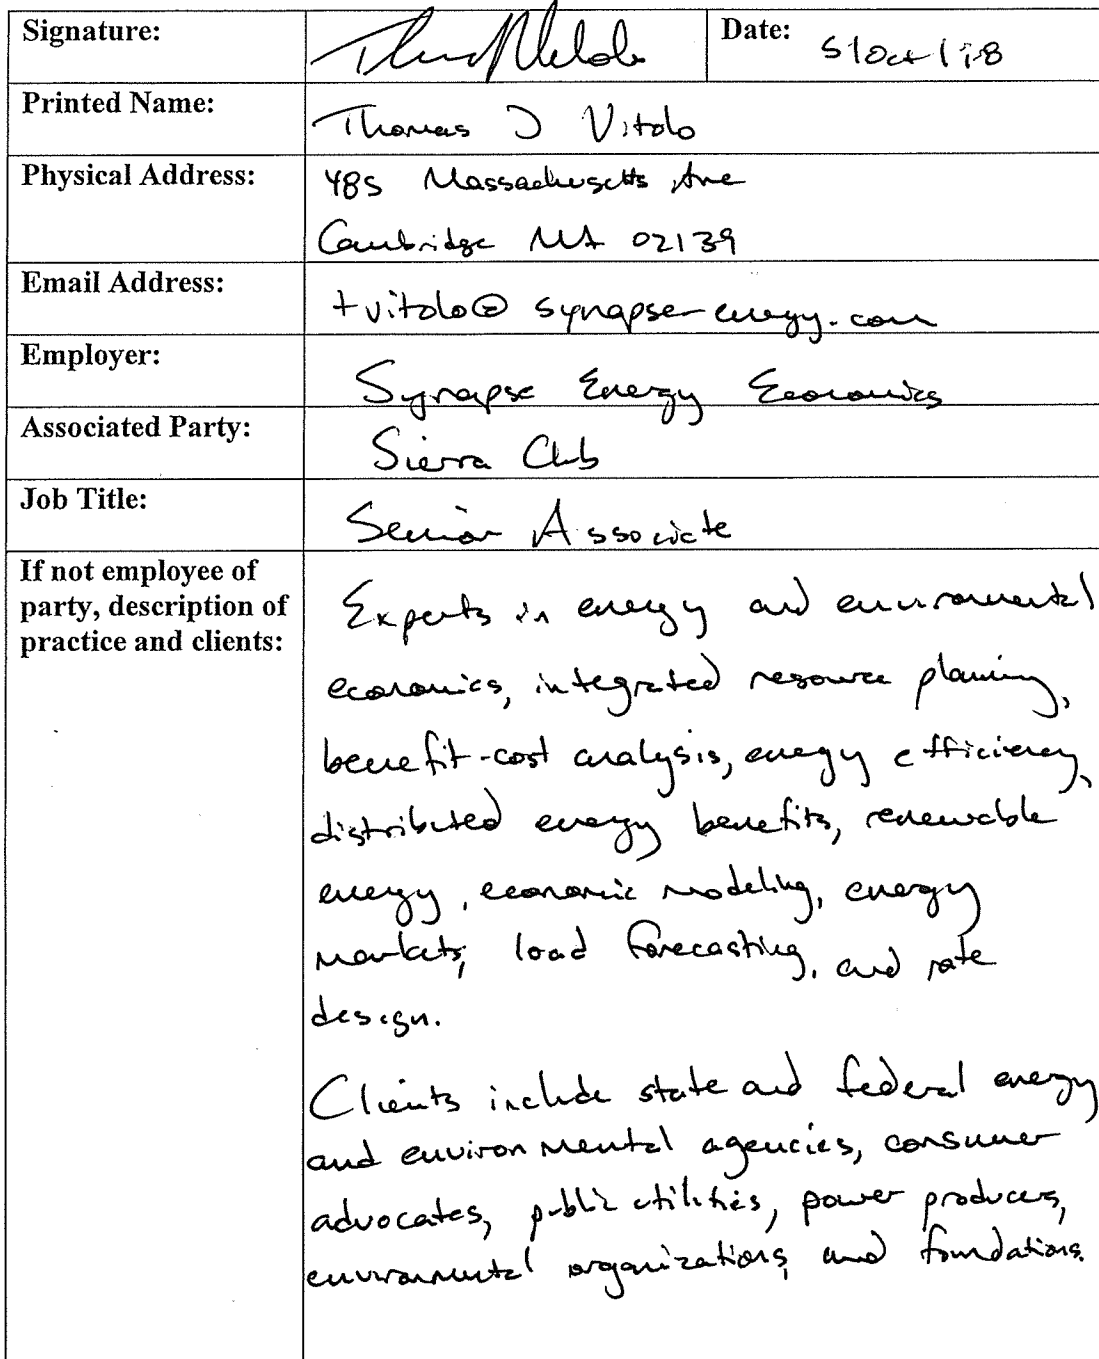 Signature: Date: 5/Oct/18
Printed Name: Thomas J Vitolo
Physical Address: 485 Massachusetts Ave
Cambridge MA 02139
Email Address: tvitolo@synapse-energy.com
Employer: Synapse Energy Economics
Associated Party: Sierra Club
Job Title: Senior Associate
If not employee of
party, description of
practice and clients:
Experts in energy and environmental
economics, integrated resource planning,
benefit-cost analysis, energy efficiency,
distributed energy benefits, renewable
energy, economic modeling, energy
markets, load forecasting, and rate
design.
Clients include state and federal energy
and environmental agencies, consumer
advocates, public utilities, power producers,
environmental organizations, and foundations.